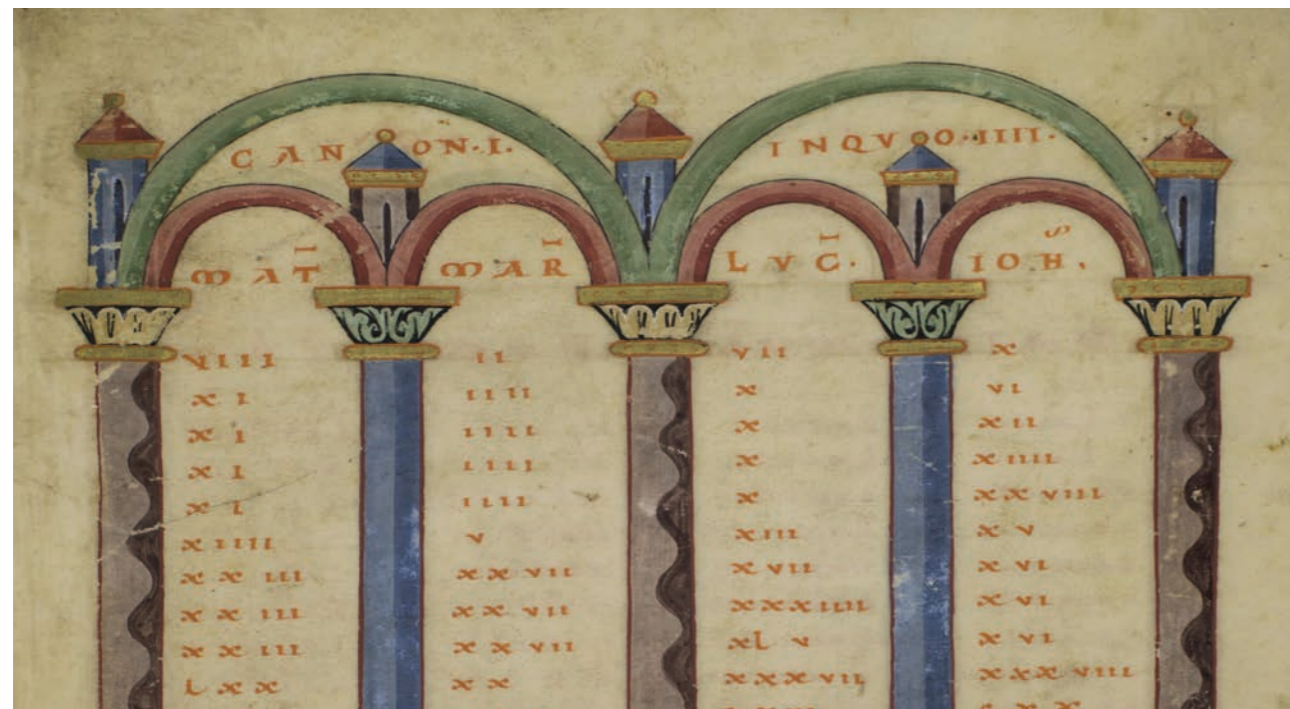 CANON.I. INQVO.IIII.
I I I S
MAT MAR LVC. IOH.
VIIII II VII X
XI IIII X VI
XI IIII X XII
XI IIII X XIIII
XI IIII X XXVIII
XIIII V XIII XV
XXIII XXVII XVII XVI
XXIII XXVII XXXIIII XVI
XXIII XXVII XLV XVI
LXX XX XXXVII XXXVIII